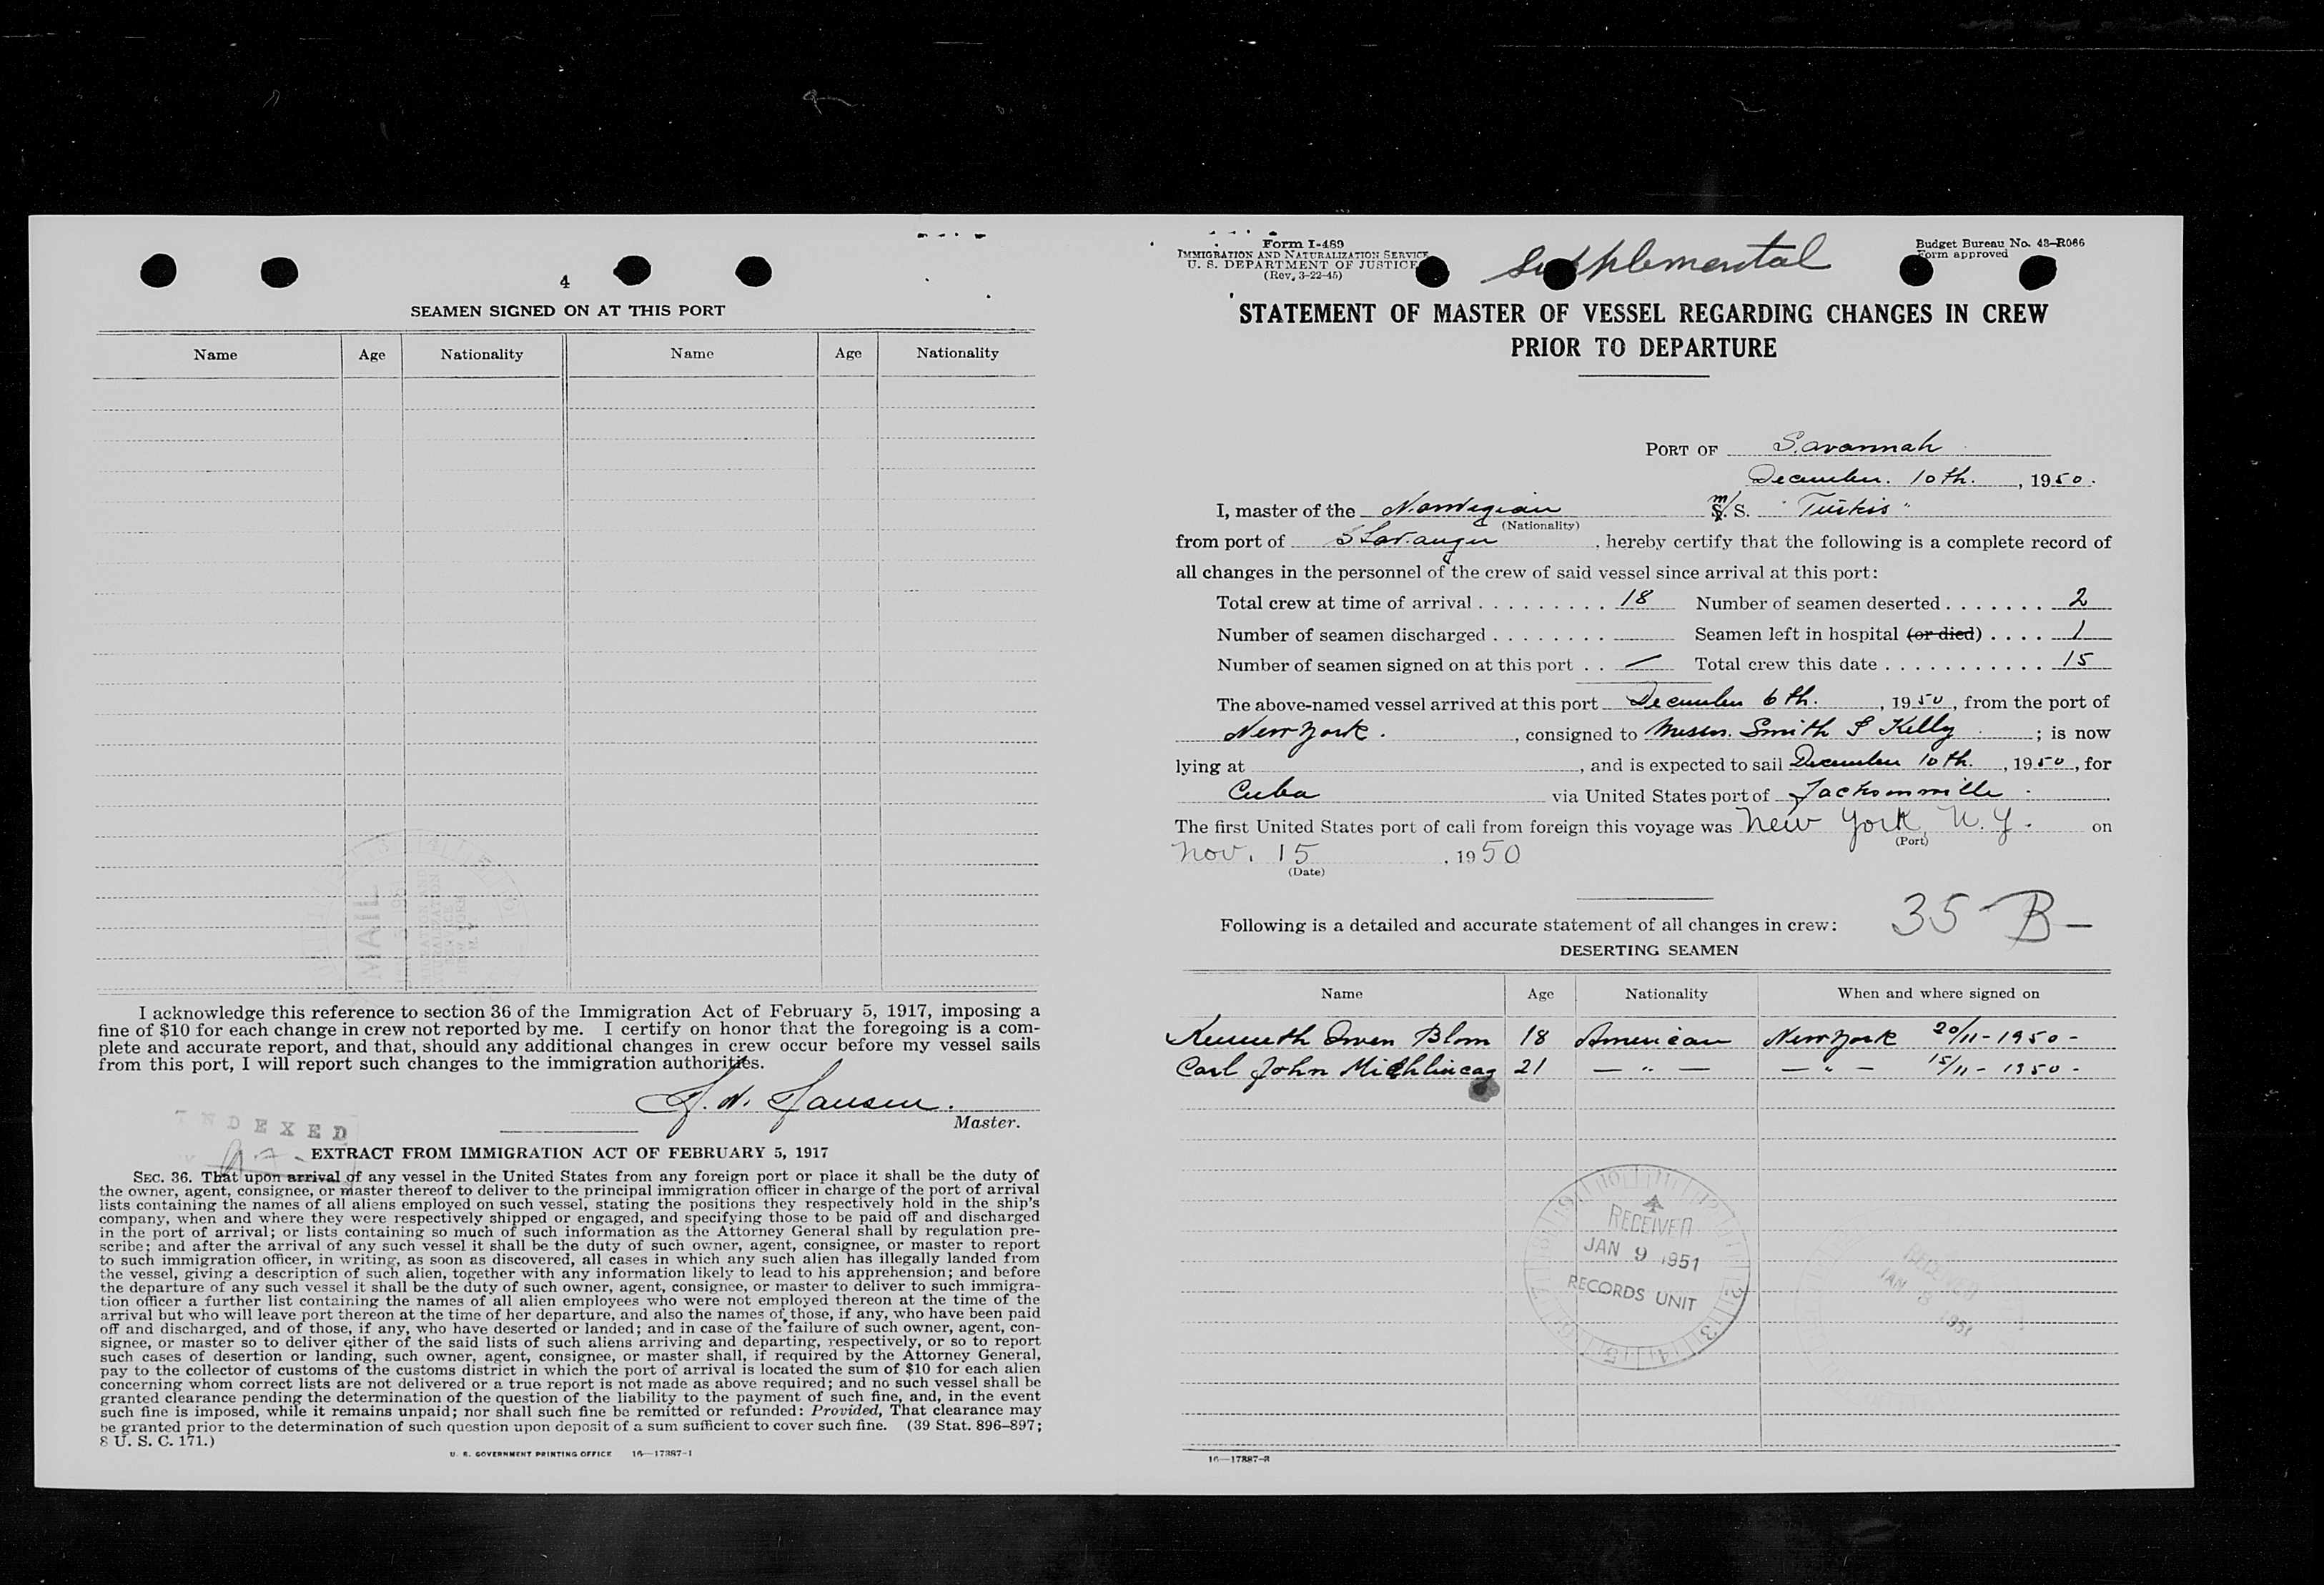 4
SEAMEN SIGNED ON AT THIS PORT
Name Age Nationality Name Age Nationality
MAIL
I acknowledge this reference to section 36 of the Immigration Act of February 5, 1917, imposing a
fine of $10 for each change in crew not reported by me. I certify on honor that the foregoing is a com-
plete and accurate report, and that, should any additional changes in crew occur before my vessel sails
from this port, I will report such changes to the immigration authorities.
Hansen.
Master.
INDEXED
EXTRACT FROM IMMIGRATION ACT OF FEBRUARY 5, 1917
SEC. 36. That upon arrival of any vessel in the United States from any foreign port or place it shall be the duty of
the owner, agent, consignee, or master thereof to deliver to the principal immigration officer in charge of the port of arrival
lists containing the names of all aliens employed on such vessel, stating the positions they respectively hold in the ship's
company, when and where they were respectively shipped or engaged, and specifying those to be paid off and discharged
in the port of arrival; or lists containing so much of such information as the Attorney General shall by regulation pre-
scribe; and after the arrival of any such vessel it shall be the duty of such owner, agent, consignee, or master to report
to such immigration officer, in writing, as soon as discovered, all cases in which any such alien has illegally landed from
the vessel, giving a description of such alien, together with any information likely to lead to his apprehension; and before
the departure of any such vessel it shall be the duty of such owner, agent, consignee, or master to deliver to such immigra-
tion officer a further list containing the names of all alien employees who were not employed thereon at the time of the
arrival but who will leave port thereon at the time of her departure, and also the names of those, if any, who have been paid
off and discharged, and of those, if any, who have deserted or landed; and in case of the failure of such owner, agent, con-
signee, or master so to deliver either of the said lists of such aliens arriving and departing, respectively, or so to report
such cases of desertion or landing, such owner, agent, consignee, or master shall, if required by the Attorney General,
pay to the collector of customs of the customs district in which the port of arrival is located the sum of $10 for each alien
concerning whom correct lists are not delivered or a true report is not made as above required; and no such vessel shall be
granted clearance pending the determination of the question of the liability to the payment of such fine, and, in the event
such fine is imposed, while it remains unpaid; nor shall such fine be remitted or refunded: Provided, That clearance may
be granted prior to the determination of such question upon deposit of a sum sufficient to cover such fine. (39 Stat. 896-897;
8 U. S. C. 171.)
U. S. GOVERNMENT PRINTING OFFICE 16—17387-1
Form I-489
IMMIGRATION AND NATURALIZATION SERVICE
U. S. DEPARTMENT OF JUSTICE
(Rev. 3-22-45)
Supplemental
Budget Bureau No. 43-R066
Form approved
STATEMENT OF MASTER OF VESSEL REGARDING CHANGES IN CREW
PRIOR TO DEPARTURE
PORT OF Savannah
December. 10th. , 1950.
I, master of the Norwegian m/S. "Turkis"
(Nationality)
from port of Stavanger , hereby certify that the following is a complete record of
all changes in the personnel of the crew of said vessel since arrival at this port:
Total crew at time of arrival . . . . . . . . . 18 Number of seamen deserted . . . . . . . 2
Number of seamen discharged . . . . . . . . Seamen left in hospital (or died) . . . . 1
Number of seamen signed on at this port . . — Total crew this date . . . . . . . . . . . 15
The above-named vessel arrived at this port December 6th. , 1950, from the port of
New York. , consigned to Messrs. Smith & Kelly ; is now
lying at , and is expected to sail December 10th. , 1950, for
Cuba via United States port of Jacksonville.
The first United States port of call from foreign this voyage was New York, N.Y. on
(Port)
Nov. 15 , 1950
(Date)
35 B—
Following is a detailed and accurate statement of all changes in crew:
DESERTING SEAMEN
Name Age Nationality When and where signed on
Kenneth Owen Blom 18 American New York 20/11-1950-
Carl John 21 — " — — " — 15/11-1950-
RECEIVED
JAN 9 1951
RECORDS UNIT
RECEIVED
JAN 8 1951
16—17387-2